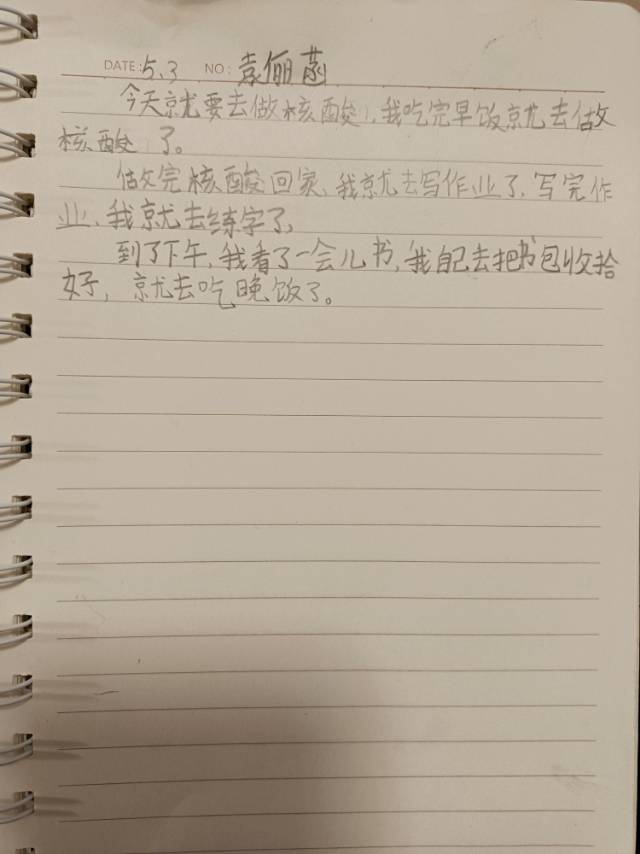 DATE: 5.3 NO: 袁俪菡
今天就要去做核酸,我吃完早饭就去做
核酸了。
做完核酸回家,我就去写作业了,写完作
业,我就去练字了,
到了下午,我看了一会儿书,我自己去把书包收拾
好,就去吃晚饭了。